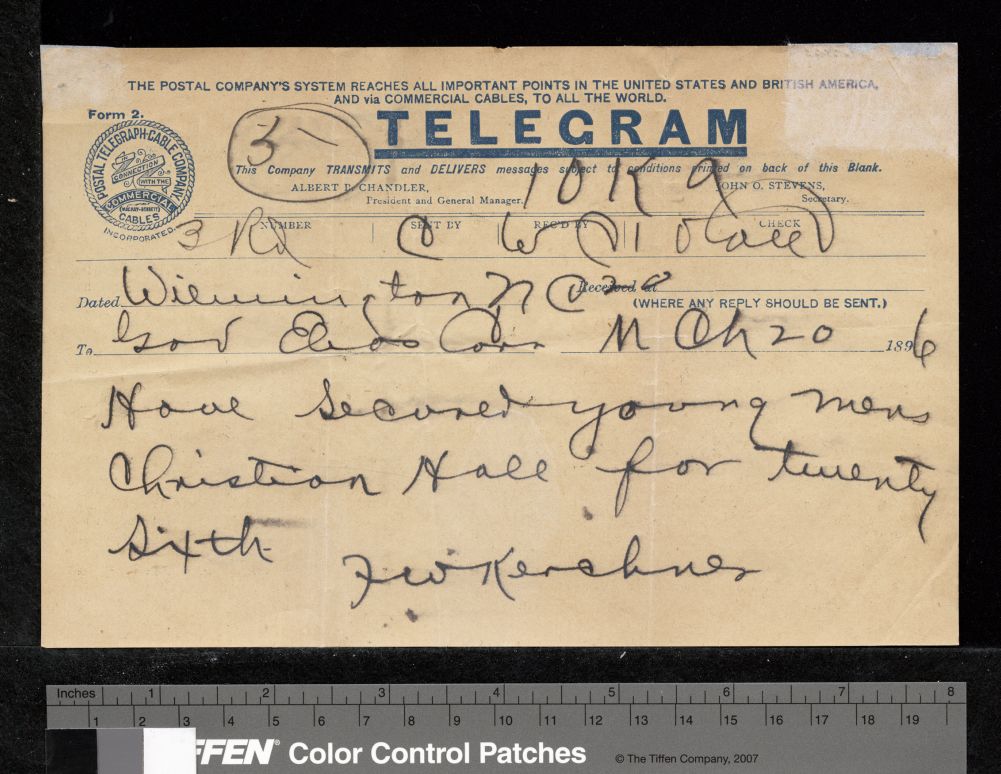 THE POSTAL COMPANY'S SYSTEM REACHES ALL IMPORTANT POINTS IN THE UNITED STATES AND BRITISH AMERICA,
AND via COMMERCIAL CABLES, TO ALL THE WORLD.
Form 2.
3 -
TELEGRAM
POSTAL TELEGRAPH-CABLE COMPANY
IN CONNECTION WITH THE
COMMERCIAL
(MACKAY-BENNETT)
CABLES
INCORPORATED.
This Company TRANSMITS and DELIVERS messages subject to conditions printed on back of this Blank.
ALBERT B. CHANDLER,
President and General Manager.
JOHN O. STEVENS,
Secretary.
10 K 9
NUMBER SENT BY REC'D BY CHECK
3 Rd C W
Dated Wilmington N C 20 Received at
(WHERE ANY REPLY SHOULD BE SENT.)
To Gov Elias Carr M Ch 20 1896
Have secured young mens
Christian Hall for twenty
sixth
F W Kerchner
Inches 1 2 3 4 5 6 7 8
1 2 3 4 5 6 7 8 9 10 11 12 13 14 15 16 17 18 19
FFEN® Color Control Patches © The Tiffen Company, 2007